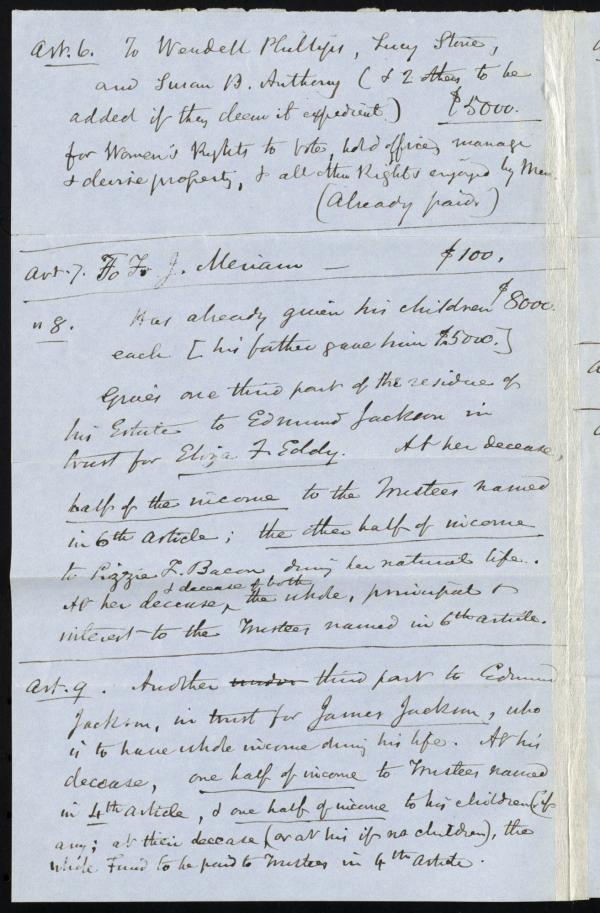 Art. 6. To Wendell Phillips, Lucy Stone,
and Susan B. Anthony (& 2 others to be
added if they deem it expedient) $5000.
for Women's Rights to vote, hold office, manage
& devise property, & all other Rights enjoyed by Men
(Already paid)
Art. 7. To F. J. Meriam — $100.
" 8. Has already given his children $8000
each [his father gave him $5000.]
Gives one third part of the residue of
his Estate to Edmund Jackson in
trust for Eliza F Eddy. At her decease,
half of the income to the Trustees named
in 6th article; the other half of income
to Lizzie F. Bacon during her natural life.
& decease of both
At her decease, the whole, principal &
interest to the Trustees named in 6th article.
Art. 9. Another under third part to Edmund
Jackson, in trust for James Jackson, who
is to have whole income during his life. At his
decease, one half of income to Trustees named
in 4th article, & one half of income to his children (if
any; at their decease (or at his if no children), the
whole Fund to be paid to Trustees in 4th article.